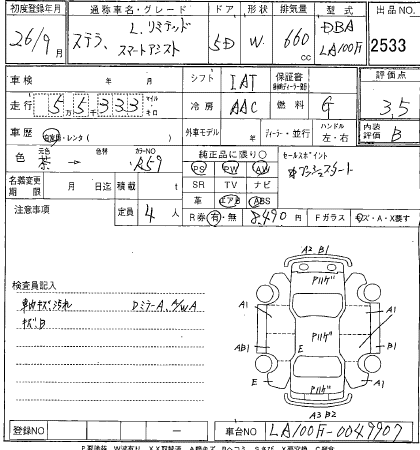 初度登録年月 通称車名・グレード ドア 形状 排気量 型式 出品NO
26/9月 ステラ L.リミテッド スマートアシスト 5D W. 660cc DBA LA100F 2533
車検 年 月 シフト IAT 保証書 評価点
走行 5万5千333 マイル キロ 冷房 AAC 燃料 G 3.5
車歴 自家用・レンタ( ) 外車モデル 年 ディーラー・並行 ハンドル 左・右 内装評価 B
色 元色 茶 → 色替 カラーNO R59 純正品に限り○ セールスポイント
PS PW AW プッシュスタート
名義変更期限 月 日迄 積載 t SR TV ナビ
革 エアB ABS
注意事項 定員 4人 R券 有・無 8,490円 Fガラス キズ・A・X要す
検査員記入
車内キズ汚れ DミラーA、A/W A
キズ、凹
A2 B1
アリゲ
A1 A1
アリゲ
AB1 E B1
E A1
アリゲ
A3 B2
登録NO ー 車台NO LA100F-0049907